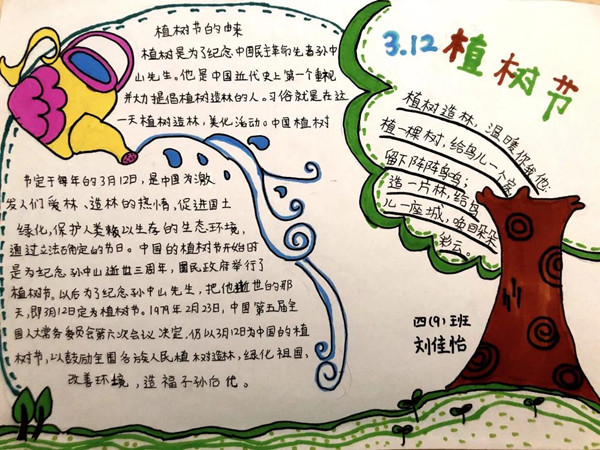 植树节的由来
植树是为了纪念中国民主革命先驱孙中
山先生。他是中国近代史上第一个重视
并大力提倡植树造林的人。习俗就是在这
一天植树造林,美化活动。中国植树
节定于每年的3月12日,是中国为激
发人们爱林、造林的热情,促进国土
绿化,保护人类赖以生存的生态环境,
通过立法确定的节日。中国的植树节开始时
是为纪念孙中山逝世三周年,国民政府举行了
植树节。以后为了纪念孙中山先生,把他逝世的那
天,即3月12日定为植树节。1979年2月23日,中国第五届全
国人大常务委员会第六次会议决定,仍以3月12日为中国的植
树节,以鼓励全国各族人民植树造林,绿化祖国,
改善环境,造福子孙后代。
3.12植树节
植树造林,温暖你我他:
植一棵树,给鸟儿一个家,
留下阵阵鸟鸣;
造一片林,给鸟
儿一座城,唤回朵朵
彩云。
四(9)班
刘佳怡